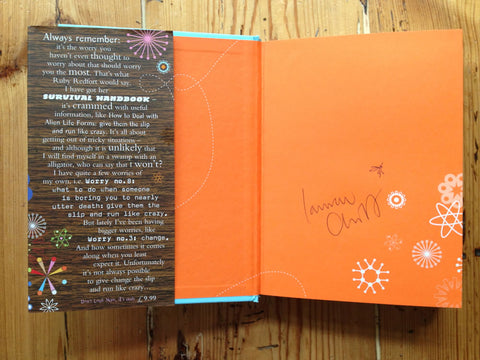 Always remember:
it's the worry you
haven't even thought to
worry about that should worry
you the most. That's what
Ruby Redfort would say.
I have got her
SURVIVAL HANDBOOK –
it's crammed with useful
information, like How to Deal with
Alien Life Forms: give them the slip
and run like crazy. It's all about
getting out of tricky situations –
and although it is unlikely that
I will find myself in a swamp with an
alligator, who can say that I won't?
I have quite a few worries of
my own, i.e. Worry no.8:
what to do when someone
is boring you to nearly
utter death: give them the
slip and run like crazy.
But lately I've been having
bigger worries, like
Worry no.3: change.
And how sometimes it comes
along when you least
expect it. Unfortunately
it's not always possible
to give change the slip
and run like crazy...
£9.99
Lauren
Child